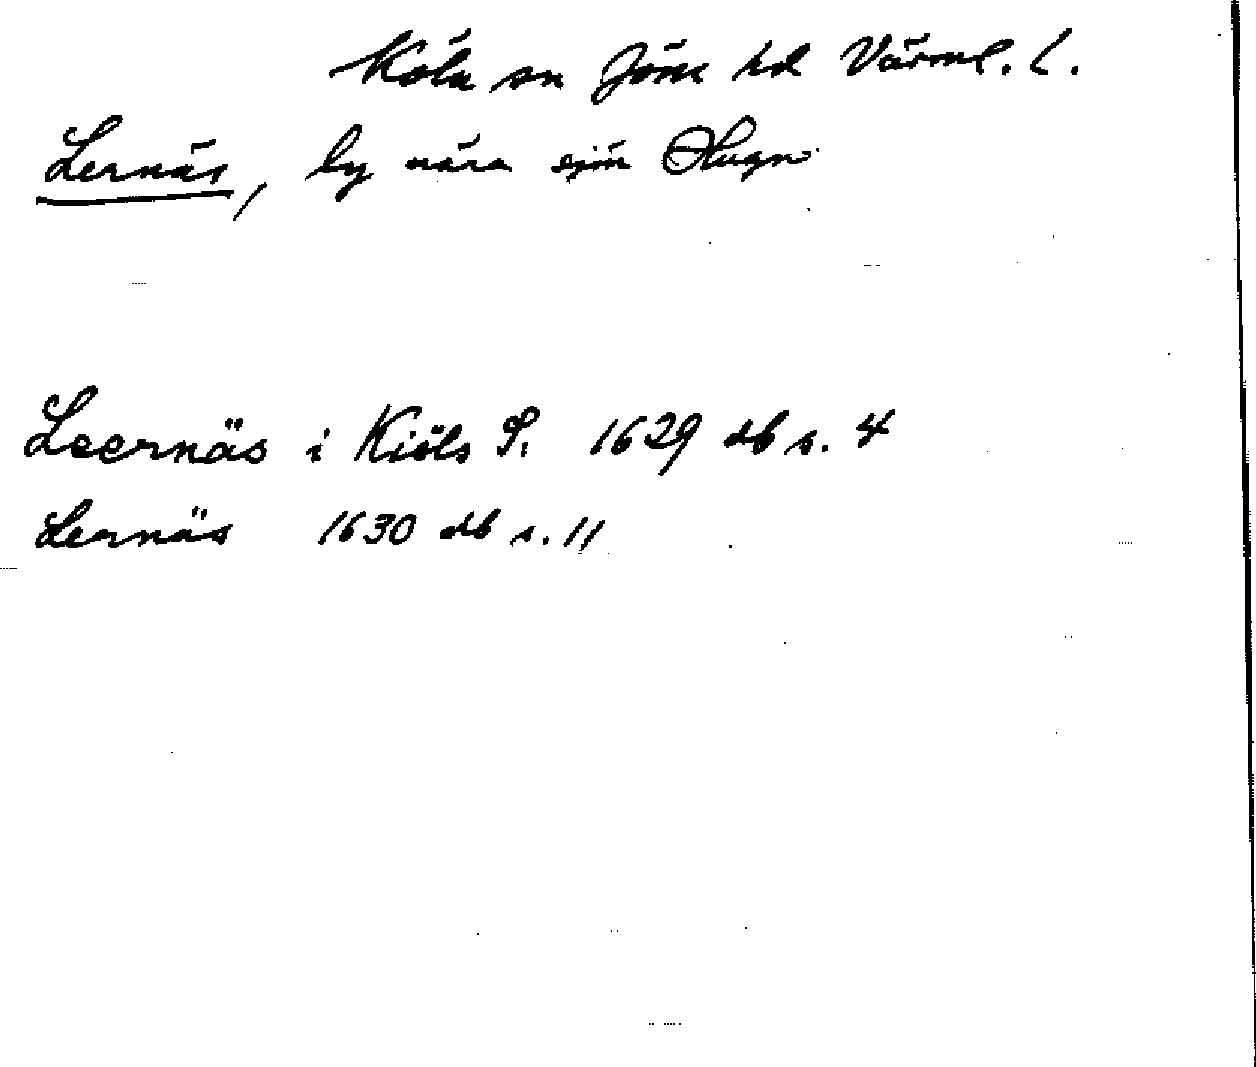 Köla sn Jösse hd Värml. L.
Lernäs, by nära sjön Hugn
Leernäs i Kiöls S. 1629 db s. 4
Lernäs 1630 db s. 11